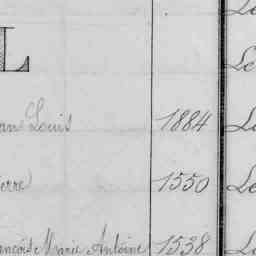 L
an Louis 1884 L
ierre) 1550 Le
ançois Marie Antoine 1538 L